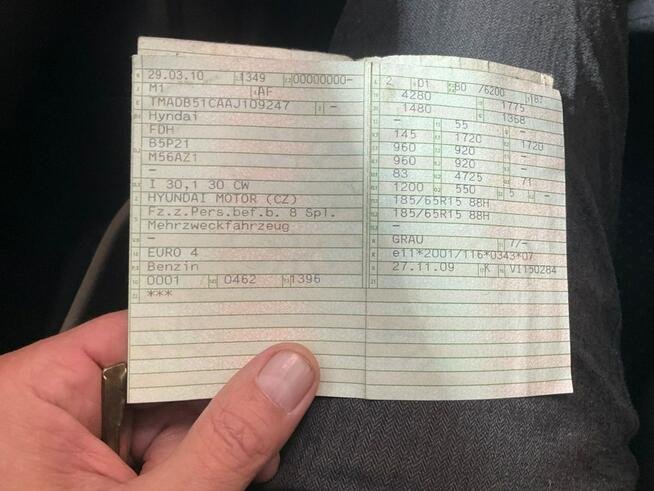 29.03.10 1349 00000000-
M1 AF
TMADB51CAAJ109247 -
Hyndai
FDH
B5P21
M56AZ1
-
I 30,1 30 CW
HYUNDAI MOTOR (CZ)
Fz.z.Pers.bef.b. 8 Spl.
Mehrzweckfahrzeug
-
EURO 4
Benzin
0001 0462 1396
***
2 01 80 /6200 187
4280 1775
1480 1368
- 55 -
145 1720 1720
960 920 -
960 920 -
83 4725 71
1200 550 5 -
185/65R15 88H
185/65R15 88H
-
GRAU 7/-
e11*2001/116*0343*07
27.11.09 K V1150284